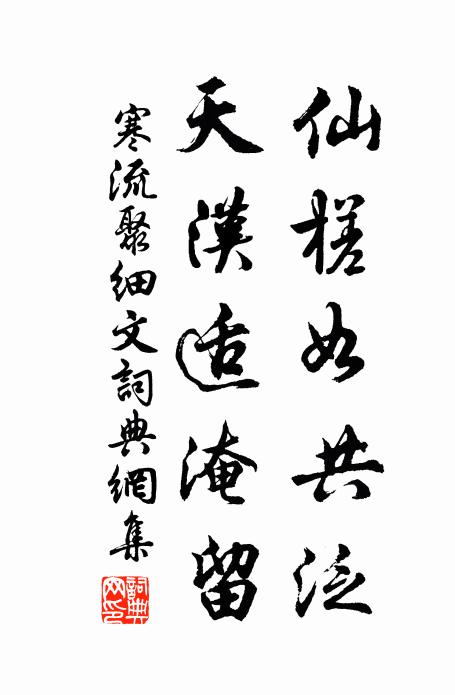 仙槎如共泛
天漢适淹留
寒流聚细文詞典網集
詞典